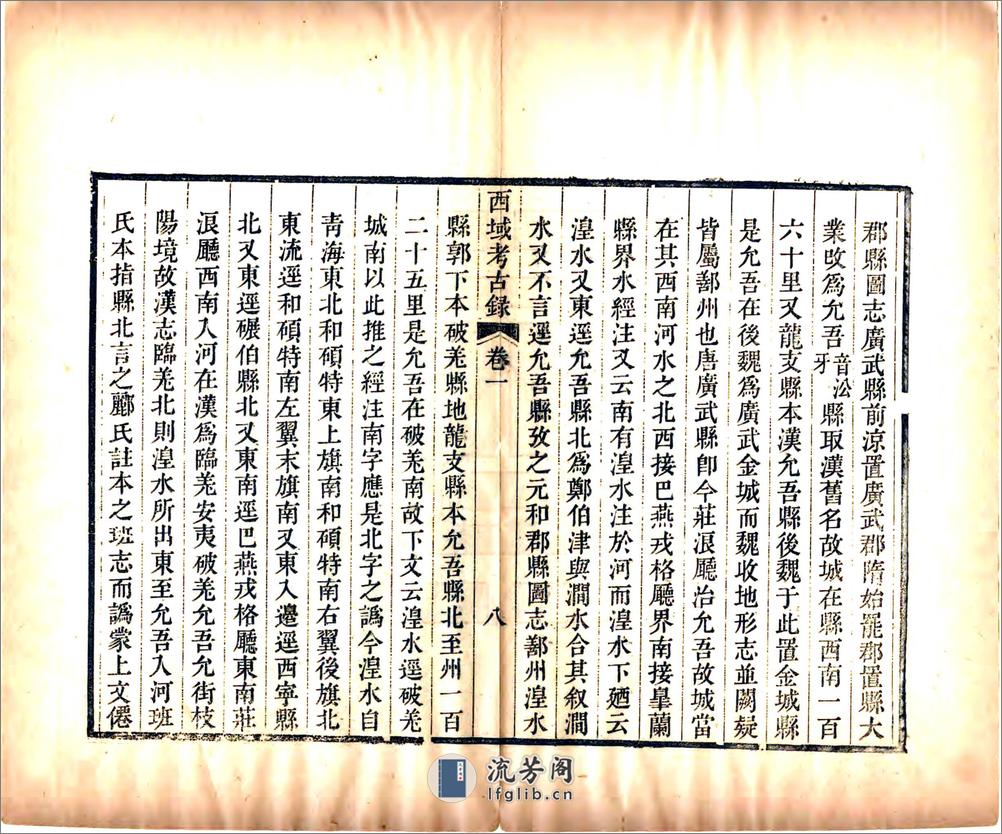 郡縣圖志廣武縣前涼置廣武郡隋始罷郡置縣大
業攺爲允吾音㳂牙縣取漢舊名故城在縣西南一百
六十里又龍支縣本漢允吾縣後魏于此置金城縣
是允吾在後魏爲廣武金城而魏收地形志並闕疑
皆屬鄯州也唐廣武縣卽今莊浪廳治允吾故城當
在其西南河水之北西接巴燕戎格廳界南接臯蘭
縣界水經注又云南有湟水注於河而湟水下廼云
湟水又東逕允吾縣北爲鄭伯津與澗水合其叙澗
水又不言逕允吾縣攷之元和郡縣圖志鄯州湟水
西域考古録 卷一 八
縣郭下本破羌縣地龍支縣本允吾縣北至州一百
二十五里是允吾在破羌南故下文云湟水逕破羌
城南以此推之經注南字應是北字之譌今湟水自
靑海東北和碩特東上旗南和碩特南右翼後旗北
東流逕和碩特南左翼末旗南又東入邊逕西寧縣
北又東逕碾伯縣北又東南逕巴燕戎格廳東南莊
浪廳西南入河在漢爲臨羌安夷破羌允吾允街枝
陽境故漢志臨羌北則湟水所出東至允吾入河班
氏本指縣北言之酈氏註本之班志而譌蒙上文僊
流芳阁
lfglib.cn